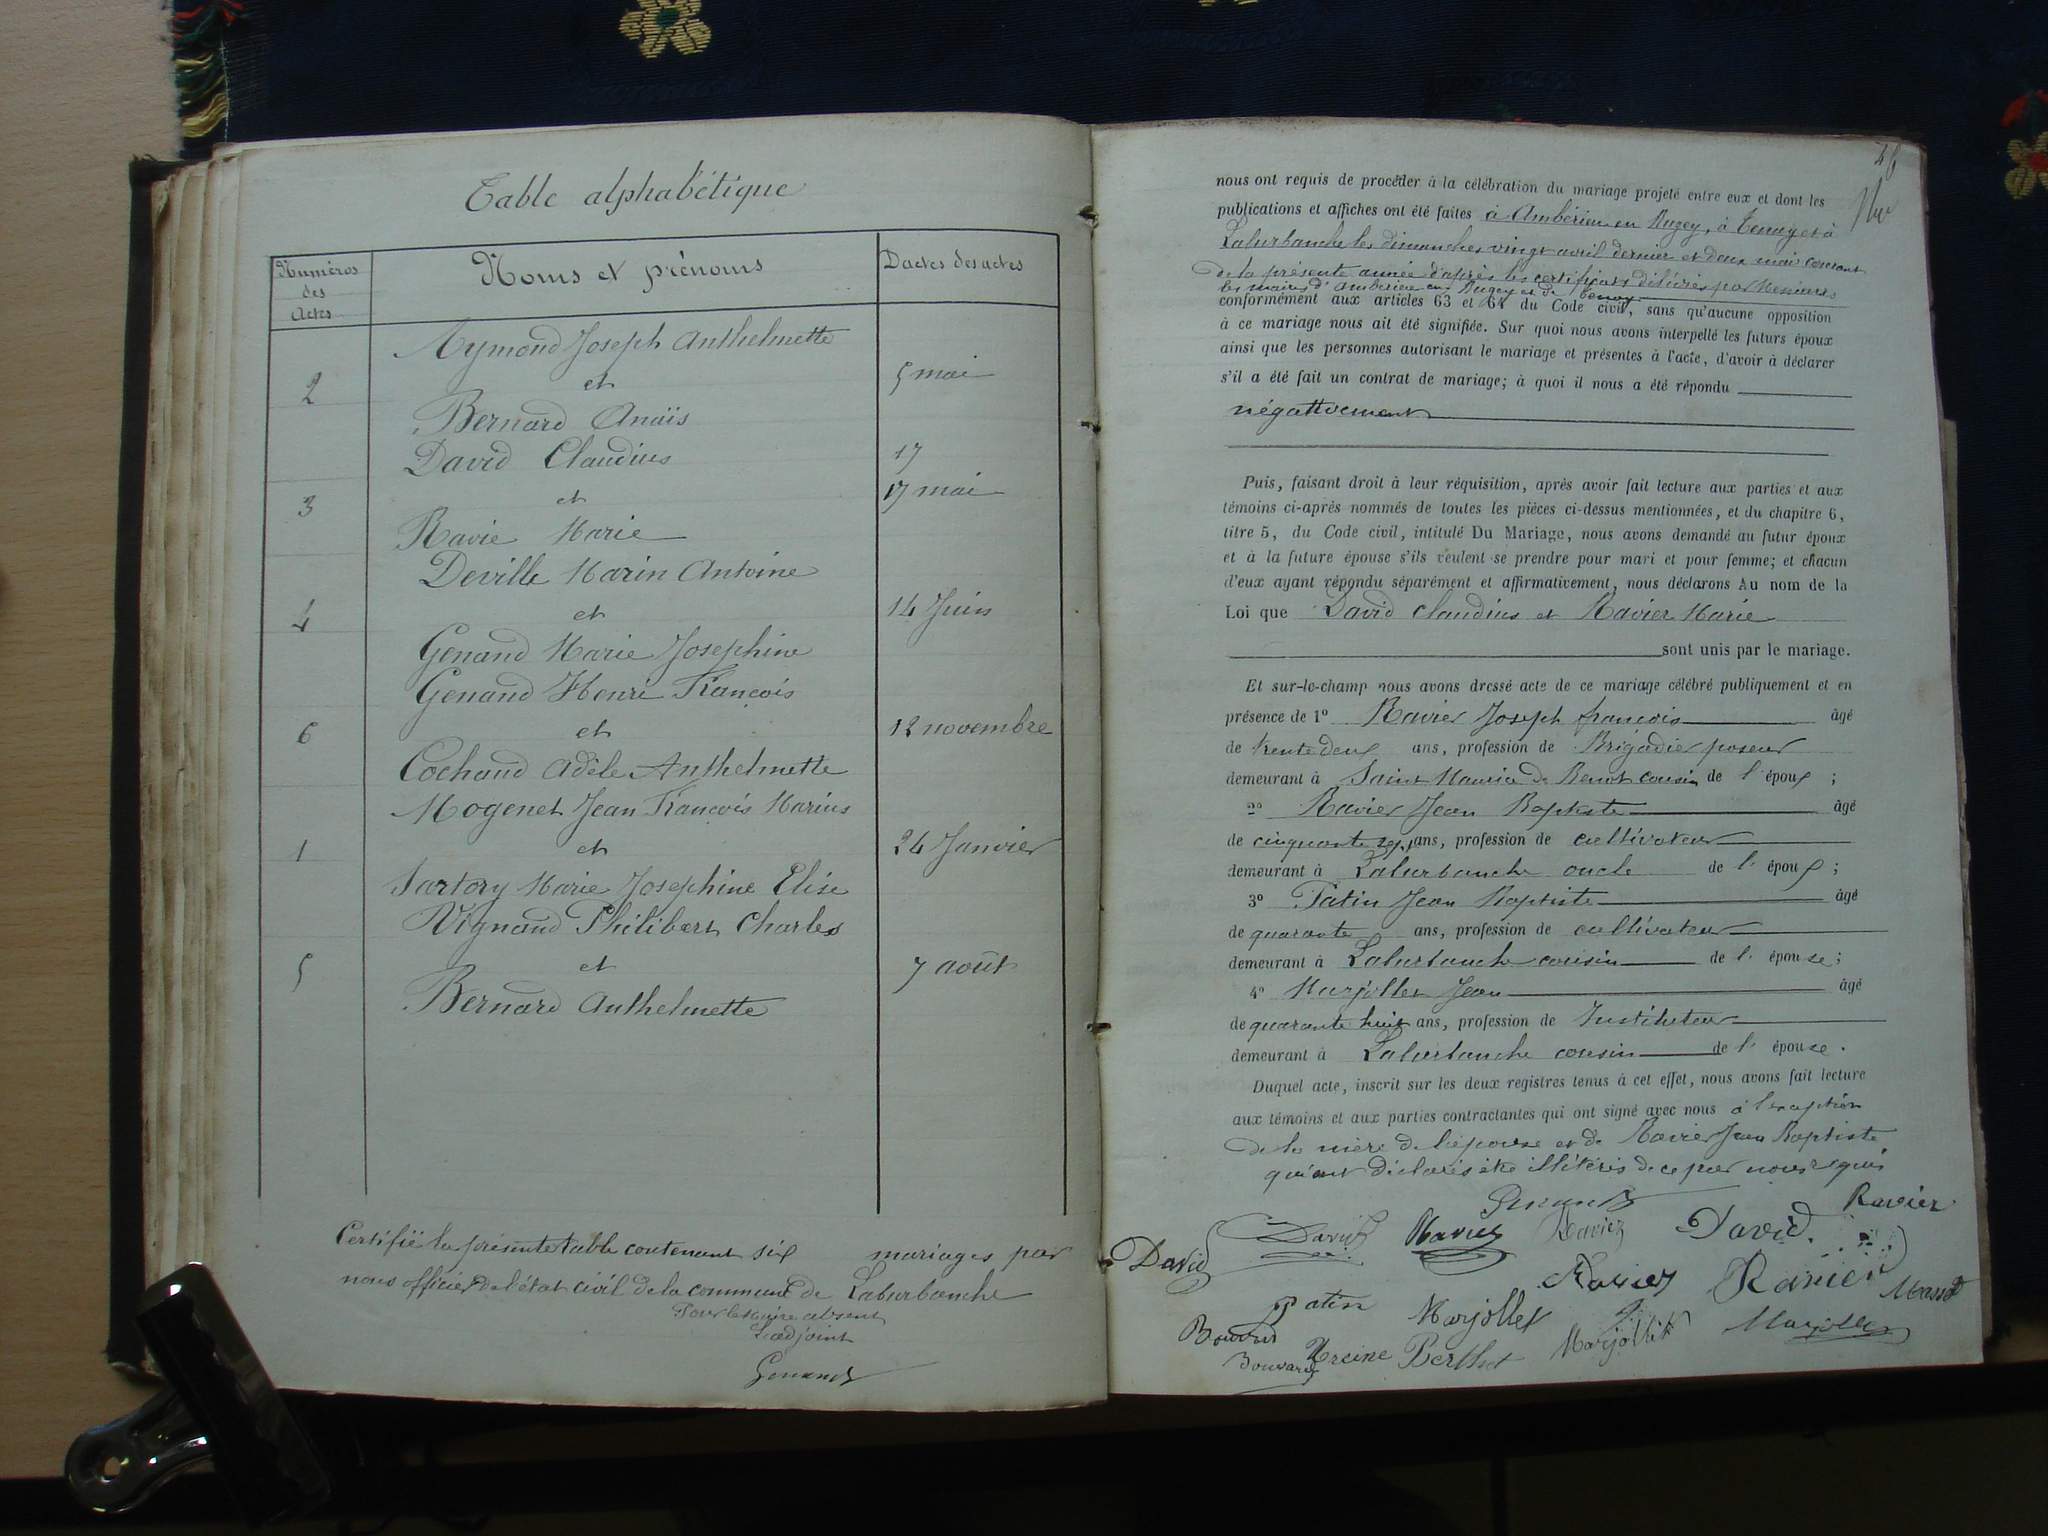 Table alphabétique
Numéros
des
Actes
Noms et prénoms
Dactes des actes
Aymond Joseph Anthelmette
2
et
5 mai
Bernard Anaïs
David Claudius
17
3
et
17 mai
Ravie Marie
Deville Marin Antoine
4
et
14 Juin
Genand Marie Josephine
Genand Henri François
6
et
12 novembre
Cochaud Adèle Anthelmette
Mogenet Jean François Marius
1
et
24 Janvier
Sartory Marie Josephine Elise
Vignand Philibert Charles
5
et
7 août
Bernard Anthelmette
Certifié la présente table contenant six mariages par
nous officier de l'état civil de la commune de Laburbanche
Pour le Maire absent
L'adjoint
Genand
nous ont requis de procéder à la célébration du mariage projeté entre eux et dont les
publications et affiches ont été faites à Ambérieu en Bugey, à Tenay et à
Laburbanche les dimanches vingt avril dernier et deux mai courant
de la présente année d'après les certificats délivrés par Messieurs
les maires d'Ambérieu en Bugey et de Tenay
conformément aux articles 63 et 64 du Code civil, sans qu'aucune opposition
à ce mariage nous ait été signifiée. Sur quoi nous avons interpellé les futurs époux
ainsi que les personnes autorisant le mariage et présentes à l'acte, d'avoir à déclarer
s'il a été fait un contrat de mariage; à quoi il nous a été répondu
négativement
Puis, faisant droit à leur réquisition, après avoir fait lecture aux parties et aux
témoins ci-après nommés de toutes les pièces ci-dessus mentionnées, et du chapitre 6,
titre 5, du Code civil, intitulé Du Mariage, nous avons demandé au futur époux
et à la future épouse s'ils veulent se prendre pour mari et pour femme; et chacun
d'eux ayant répondu séparément et affirmativement, nous déclarons Au nom de la
Loi que David Claudius et Ravier Marie
sont unis par le mariage.
Et sur-le-champ nous avons dressé acte de ce mariage célébré publiquement et en
présence de 1º Ravier Joseph françois âgé
de trente deux ans, profession de Brigadier poseur
demeurant à Saint Maurice de cousin de l'époux ;
2º Ravier Jean Baptiste âgé
de cinquante ans, profession de cultivateur
demeurant à Laburbanche oncle de l'époux ;
3º Patin Jean Baptiste âgé
de quarante ans, profession de cultivateur
demeurant à Laburbanche cousin de l'épouse;
4º Marjollet Jean âgé
de quarante huit ans, profession de Instituteur
demeurant à Laburbanche cousin de l'épouse.
Duquel acte, inscrit sur les deux registres tenus à cet effet, nous avons fait lecture
aux témoins et aux parties contractantes qui ont signé avec nous à l'exception
de la mère de l'épouse et de Ravier Jean Baptiste
qui ont déclarés être illétérés de ce par nous requis
Genand
Ravier
David
Ravier
Ravier
David
David
Ravier
Ravier
Patin
Marjollet
Marjollet
Marjollet
Bouvard
Berthet